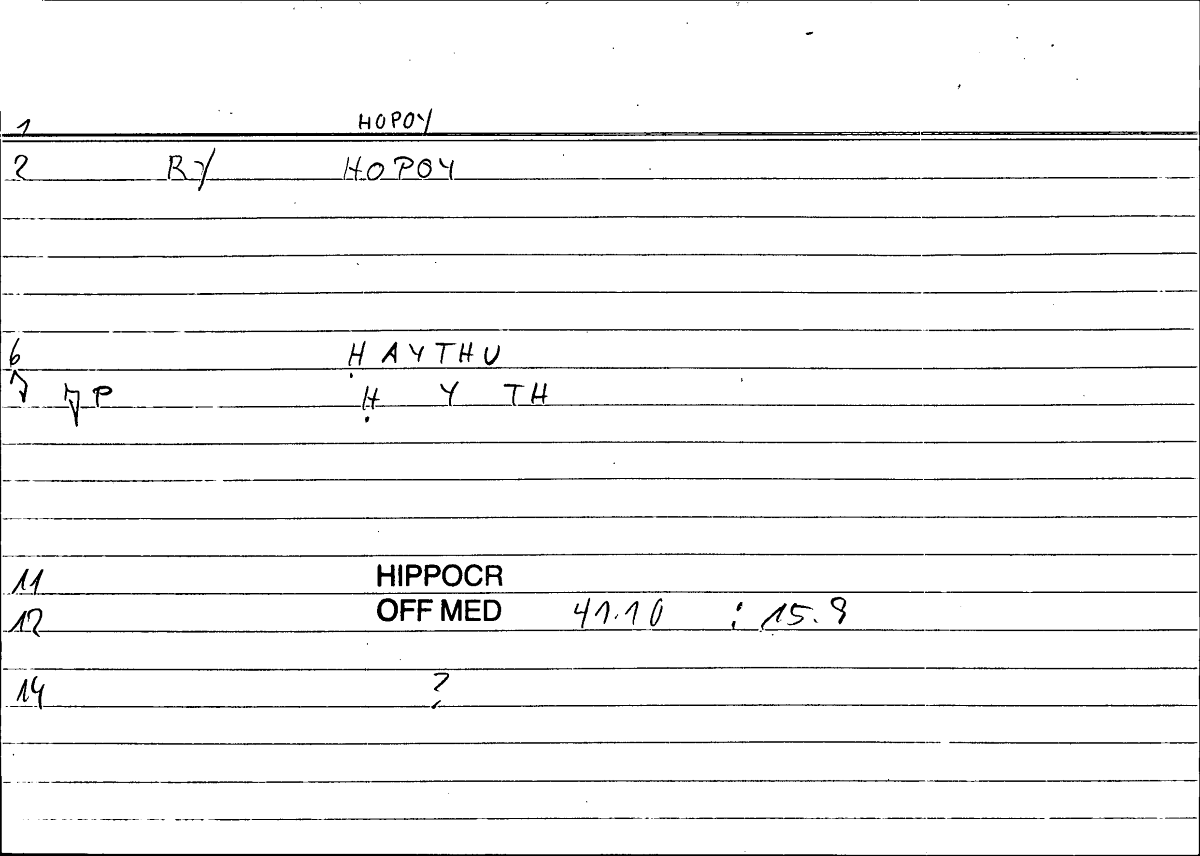 1 HOPOY
2 RY HOPOY
6 HAYTHU
P H Y TH
11 HIPPOCR
12 OFF MED 41.10 : 15.8
14 ?